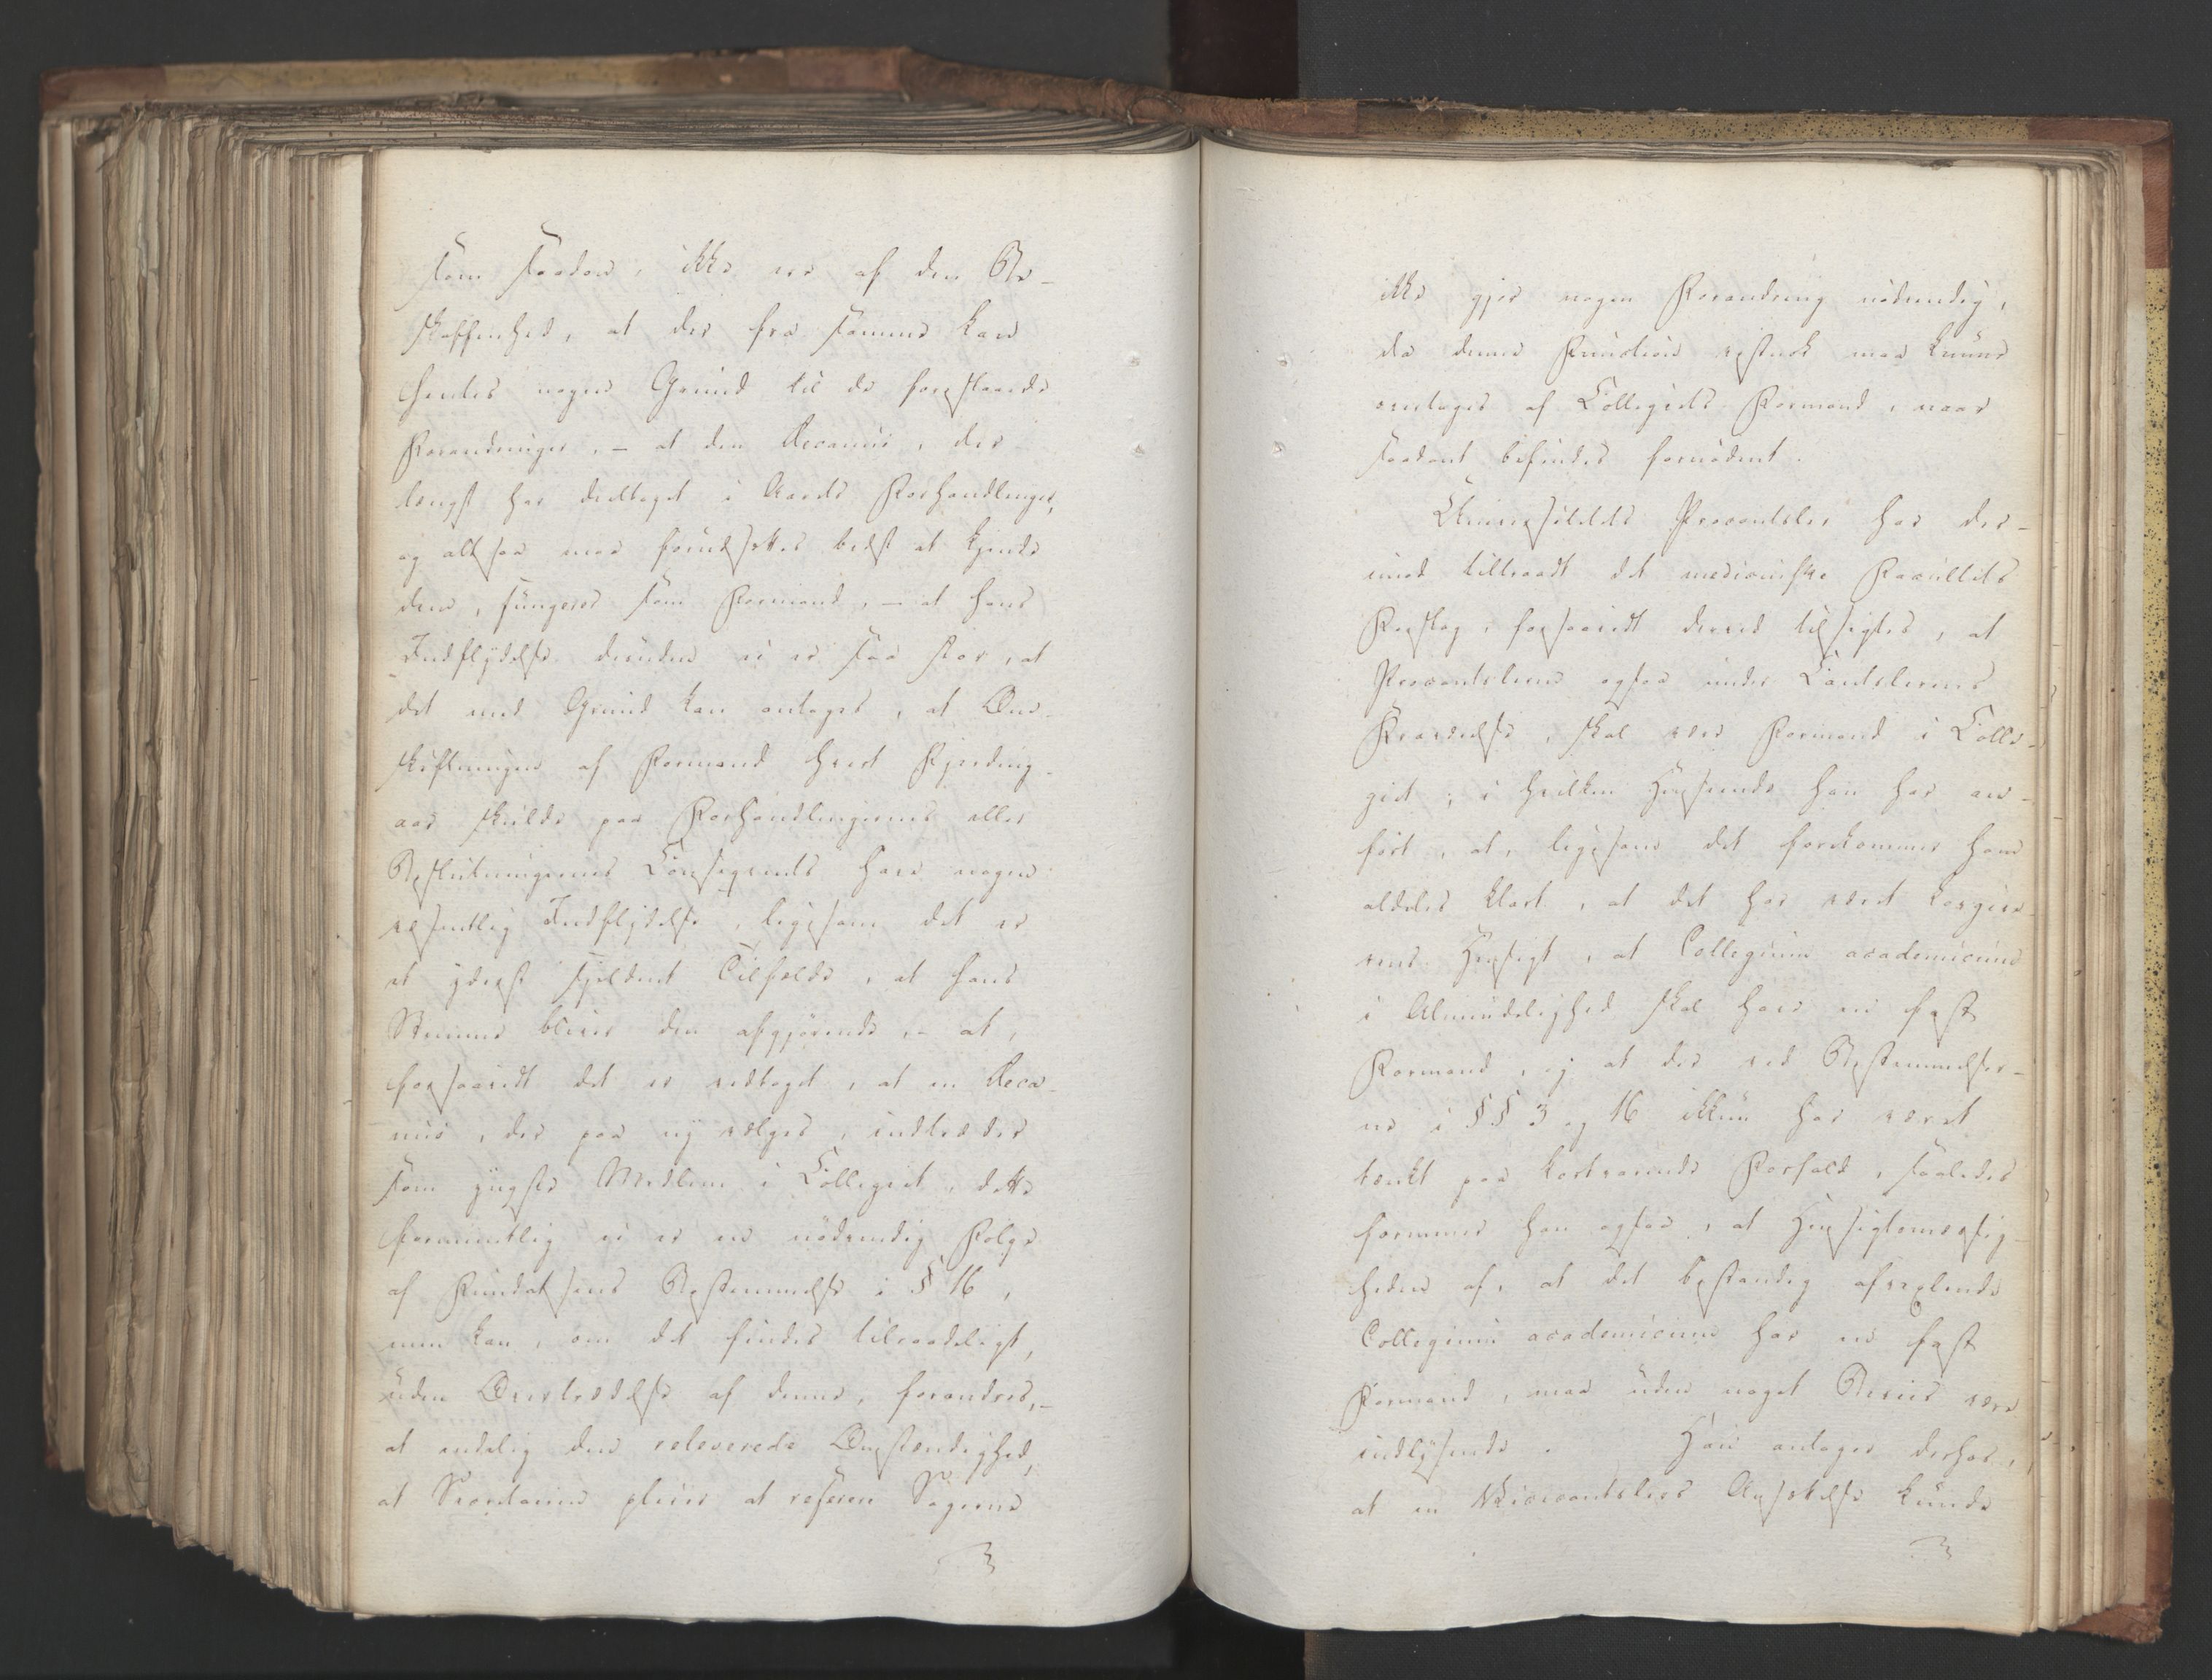 som saadan, ikke er af den Be-
skaffenhed, at der fra samme kan
hentes nogen Grund til de foreslaaede
Forandringer, – at den Decanus, der
længst har deeltaget i Aarets Forhandlinger,
og altsaa maa forudsættes bedst at kjende
dem, fungerer som Formand, – at hans
Indflydelse desuden ei er saa stor, at
det med Grund kan antages, at Om-
skiftningen af Formand hvert Fjerding-
aar skulde paa Forhandlingernes eller
Beslutningernes Conseqvents have nogen
væsentlig Indflydelse, ligesom det er
et yderst sjeldent Tilfælde, at hans
Stemme bliver den afgjørende, – at,
forsaavidt det er vedtaget, at en Deca-
nus, der paa ny vælges, indtræder
som yngste Medlem i Collegiet, dette
formeentlig ei er en nödvendig Fölge
af Fundatsens Bestemmelse i § 16,
men kan, om det findes tilraadeligt,
uden Overtrædelse af denne, forandres, –
at endelig den releverede Omstændighed,
at Secretairen pleier at referere Sagerne
ikke gjör nogen Forandring nödvendig,
da denne Function vistnok maa kunne
overtages af Collegiets Formand, naar
saadant befindes fornödent.
Universitetets Procantsler har der-
imod tiltraadt det medicinske Facultets
Forslag, forsaavidt derved tilsigtes, at
Procantsleren ogsaa under Cantslerens
Fraværelse, skal være Formand i Colle-
giet; i hvilken Henseende han har an-
fört, at, ligesom det forekommer ham
aldeles klart, at det har været Lovgive-
rens Hensigt, at Collegium academicum
i Almindelighed skal have en fast
Formand, og at der ved Bestemmelser-
ne i §§ 3 og 16 ikkun har været
tænkt paa kortvarende Forfald, saaledes
formener han ogsaa, at Hensigtsmæssig-
heden af, at det bestandig afvexlende
Collegium academicum har en fast
Formand, maa uden noget Beviis være
indlysende. Han antager derhos,
at en Vicecantslers Ansættelse kunde